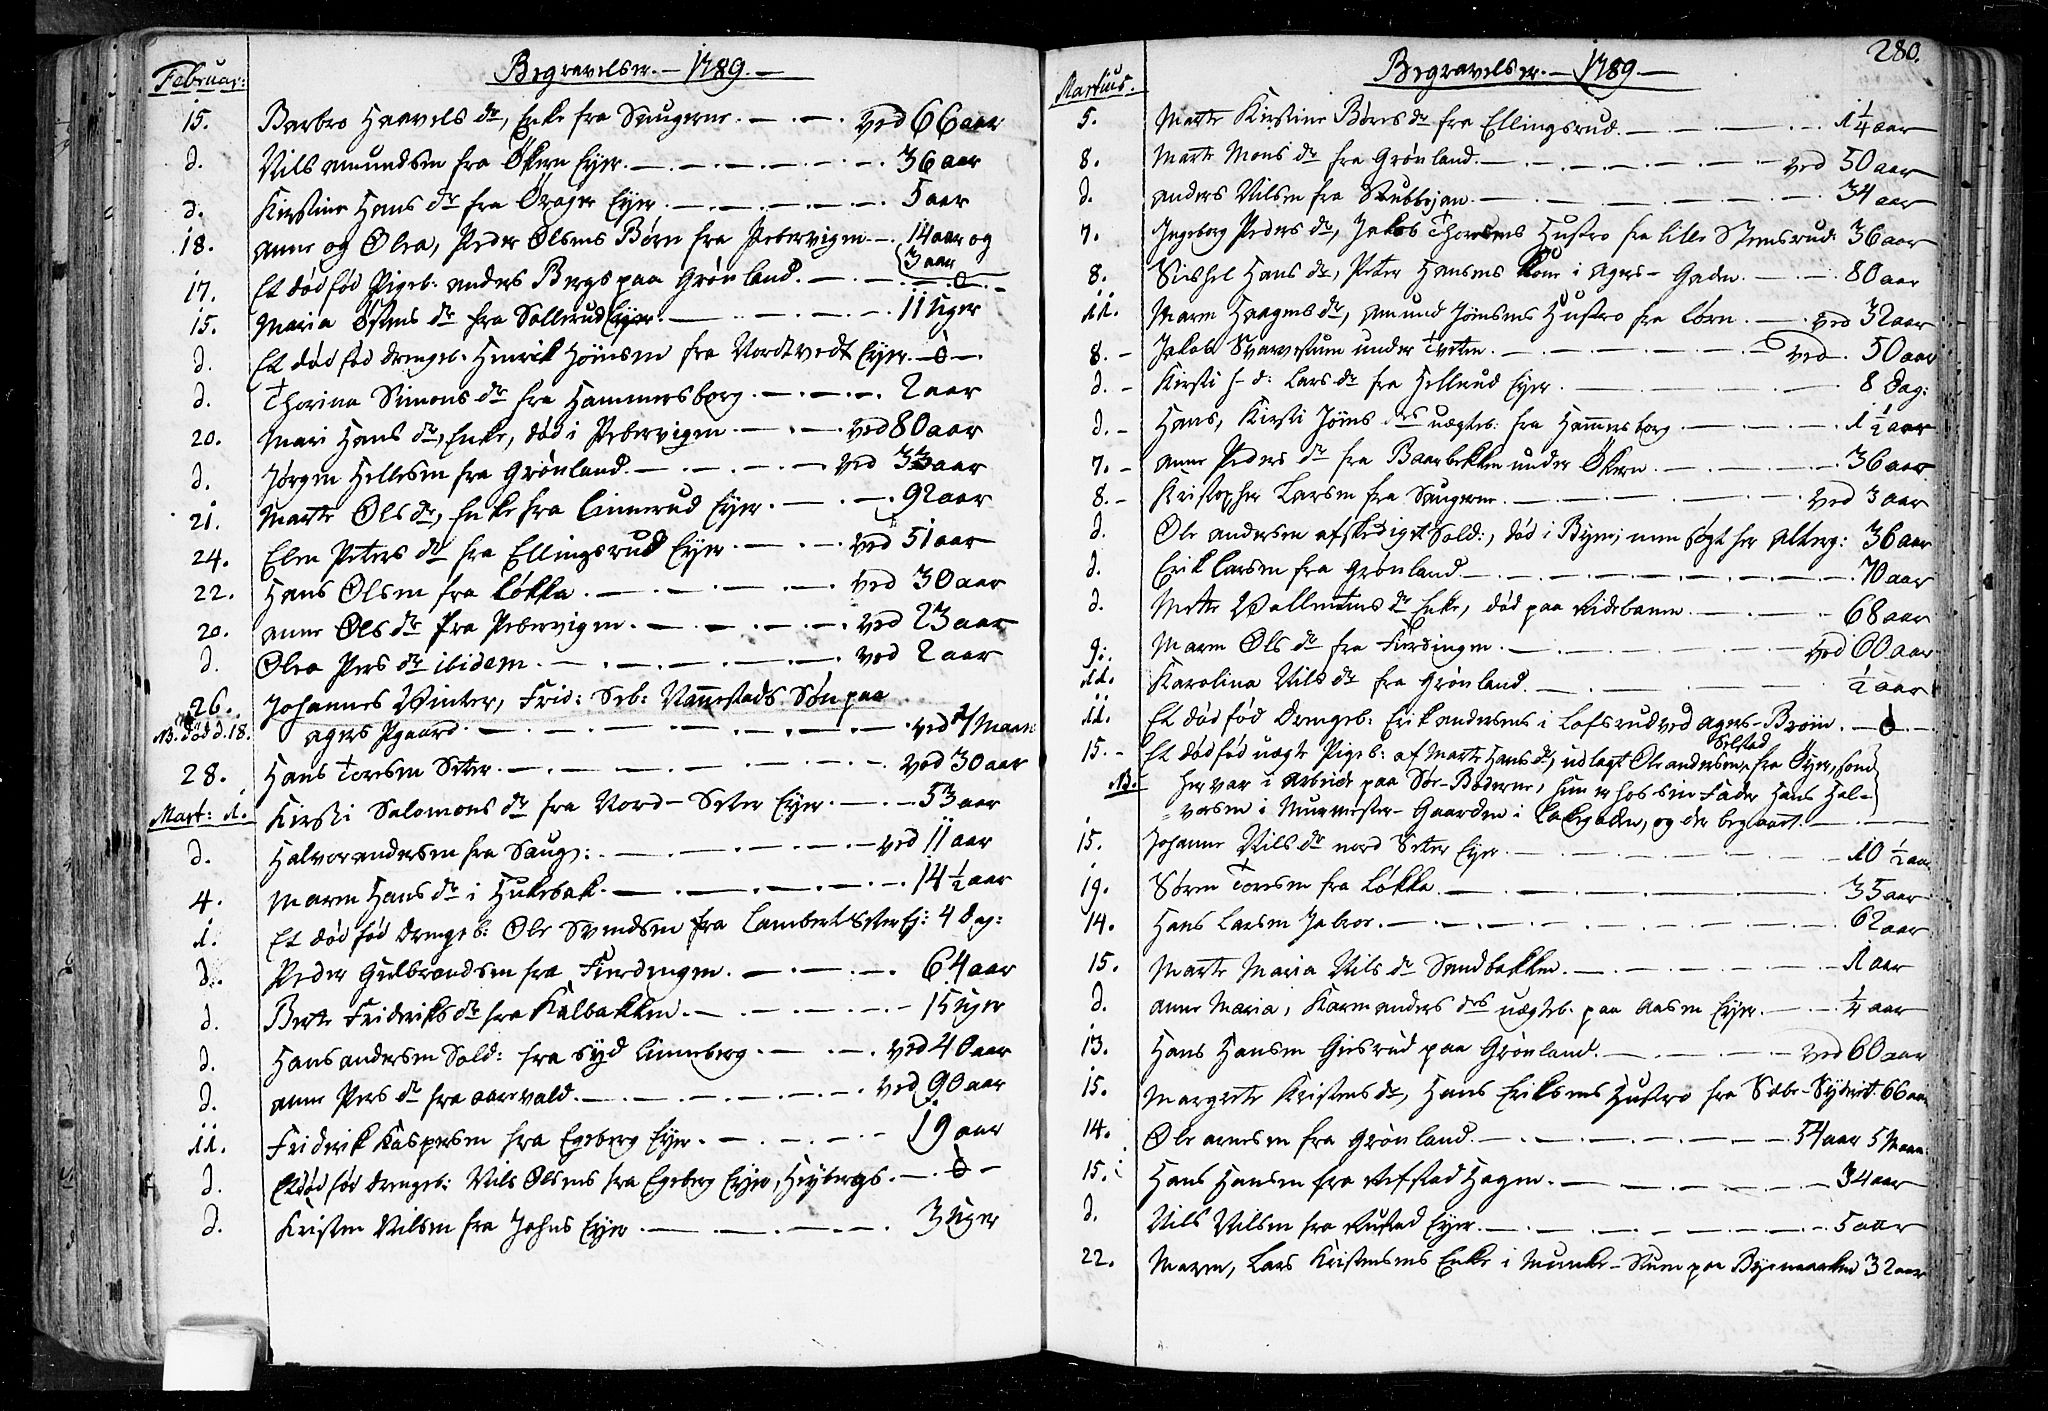 Februar:
Begravelser. — 1789. —
15. Barbro Haavels dr, Enke fra Saugerne. — ved 66 aar
d. Nils Amundsen fra Økern Eyer. — 36 aar
d. Kirstine Hans dr fra Eyer. — 5 aar
18. Anne og Olea, Peder Olsens Børn fra Pebervigen — 14 aar og
3 aar
17. Et død fød Pigeb: Anders Bergs paa Grønland. — 0 —
15. Maria Østens dr fra Sollerud Eyer. — 11 Uger
d. Et død fød Drengeb. Henrik Hønsen fra Nordtvedt Eyer — 0 —
d. Thorina Simons dr fra Hammersborg. — 2 aar
20. Mari Hans dr, Enke, død i Pebervigen — ved 80 aar
d. Jørgen Hellesen fra Grønland. — ved 33 aar
21. Marte Ols dr, Enke fra Linnerud Eyer. — 92 aar
24. Elen Peters dr fra Ellingsrud Eyer — ved 51 aar
22. Hans Olsen fra Løkka. — ved 30 aar
20. Anne Ols dr fra Pebervigen. — ved 23 aar
d. Olea Pers dr ibidem. — ved 2 aar
26. Johannes Winter, Frid: Seb: Nannestads Søn paa
NB. død d. 18. Agers Pgaard. — ved Maan
28. Hans Toresen Seter. — ved 30 aar
Mart: 1. Kirsti Salomons dr fra Nord-Seter Eyer. — 53 aar
d. Halvor Andersen fra Saug: — ved 11 aar
4. Maren Hans dr i Hukebak. — 14 ½ aar
1. Et død fød Drengeb: Ole Svendsen fra Lambertseter Ej: 4 Dag:
d. Peder Gulbrandsen fra Fierdingen. — 64 aar
d. Berte Frideriks dr fra Kalbakken. — 15 Uger
d. Hans Andersen Sold: fra Syd Linneberg. — ved 40 aar
d. Anne Pers dr fra Aarvold. — ved 90 aar
11. Friderik Kaspersen fra Egeberg Eyer. — 19 aar
d. Et død fød Drengeb: Nils Olsens fra Egeberg Eyer, Heybergs. — 0 —
d. Kristen Nilsen fra Johns Eyer — 3 Uger
280.
Martius.
Begravelser. — 1789 —
5. Marte Kirstine Børres dr fra Ellingsrud. — 1 ¼ aar
8. Marte Mons dr fra Grønland. — ved 50 aar
d. Anders Nilsen fra Stubbejan. — 34 aar
7. Ingeborg Peders dr, Jakob Thoresens Hustro fra lille Stensrud. 36 aar
8. Sidshel Hans dr, Peter Hansens Kone i Agers-Gaden. — 80 aar
11. Maren Haagens dr, Amund Jønsens Hustro fra Lørn. — ved 32 aar
8. — Jakob Svarvestuen under Tveten. — ved 50 aar
d. — Kirsti Lars dr fra Hellerud Eyer. — 8 Dag:
d. — Hans, Kirsti Jøns drs uægteb: fra Hammersborg — 1 ½ aar
7. — Anne Peders dr fra Baarbekken under Økern. — 36 aar
8. — Kristopher Larsen fra Saugerne. — ved 3 aar
d. Ole Andersen afskediget Sold:, død i Byen, men søgt her Alterg: 36 aar
d. Erik Larsen fra Grønland. — 70 aar
d. Mette Wallentins dr Enke, død paa Ridebanen. — 68 aar
9. Maren Ols dr fra Fierdingen. — ved 60 aar
11. Karolina Nils dr fra Grønland. — ½ aar
11. Et død fød Drengeb: Erik Andersens i Lofsrud ved Agers-Broen. — 0 —
15. — Et død fød uægte Pigeb: af Marte Hans dr, udlagt Ole Andersen Selstad fra Øyer, som
NB. her var i Arbeide paa Søe-Boderne, hun er hos sin Fader Hans Hal-
vorsen i Muurmester-Gaarden i Lakegaden, og der begravet. —
15. Johanne Nils dr nord Seter Eyer. — 10 ½ aar
19. Søren Toresen fra Løkka. — 35 aar
14. Hans Larsen — 62 aar
15. Marte Maria Nils dr Sandbakken. — 1 aar
d. Anne Maria, Karen Anders drs uægteb. paa Aasen Eyer. — ¼ aar
13. Hans Hansen Giesrud paa Grønland. — ved 60 aar
15. Margrete Kristens dr, Hans Eriksens Hustro fra 66 aar
14. Ole Arnesen fra Grønland. — 54 aar 5 Maan:
15. Hans Hansen fra Refstad Hagen. — 34 aar
d. Nils Nilsen fra Rustad Eyer. — 5 aar
22. Maren, Lars Kristensens Enke i Munke-Stuen paa Bymarken 32 aar